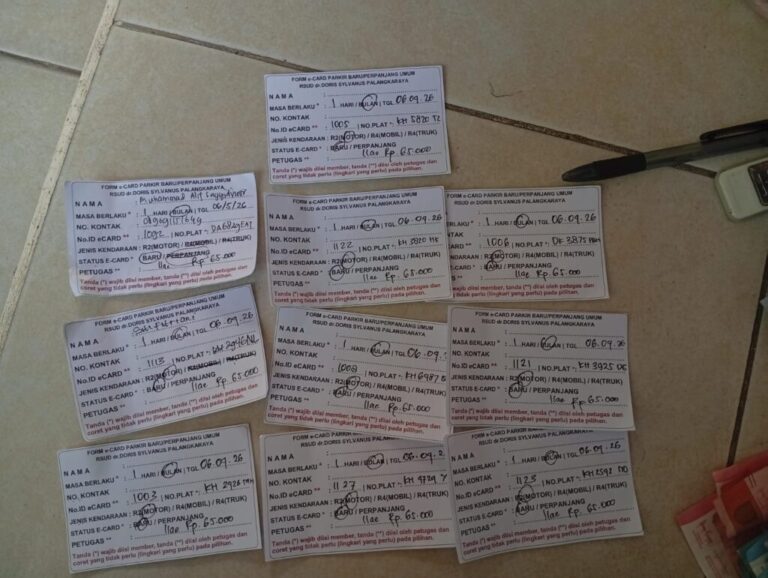 FORM e-CARD PARKIR BARU/PERPANJANG UMUM
RSUD dr.DORIS SYLVANUS PALANGKARAYA
NAMA :
MASA BERLAKU * : 1 HARI / BULAN | TGL 06.09.26
NO. KONTAK :
No.ID eCARD ** : 1005 | NO.PLAT - KH 5820 TZ
JENIS KENDARAAN : R2(MOTOR) / R4(MOBIL) / R4(TRUK)
STATUS E-CARD * : BARU / PERPANJANG
PETUGAS ** : Rp. 65.000
Tanda (*) wajib diisi member, tanda (**) diisi oleh petugas dan
coret yang tidak perlu (lingkari yang perlu) pada pilihan.
FORM e-CARD PARKIR BARU/PERPANJANG UMUM
RSUD dr.DORIS SYLVANUS PALANGKARAYA
NAMA : Muhammad
MASA BERLAKU * : 1 HARI / BULAN | TGL 06/5/26
NO. KONTAK :
No.ID eCARD ** : | NO.PLAT -
JENIS KENDARAAN : R2(MOTOR) / R4(MOBIL) / R4(TRUK)
STATUS E-CARD * : BARU / PERPANJANG
PETUGAS ** : Rp 65.000
Tanda (*) wajib diisi member, tanda (**) diisi oleh petugas dan
coret yang tidak perlu (lingkari yang perlu) pada pilihan.
NAMA :
MASA BERLAKU * : 1 HARI / BULAN | TGL 06.09.26
NO. KONTAK :
No.ID eCARD ** : 1122 | NO.PLAT - KH 3820 HK
JENIS KENDARAAN : R2(MOTOR) / R4(MOBIL) / R4(TRUK)
STATUS E-CARD * : BARU / PERPANJANG
PETUGAS ** : Rp. 65.000
Tanda (*) wajib diisi member, tanda (**) diisi oleh petugas dan
coret yang tidak perlu (lingkari yang perlu) pada pilihan.
FORM e-CARD PARKIR BARU/PERPANJANG UMUM
RSUD dr.DORIS SYLVANUS PALANGKARAYA
1 HARI / BULAN | TGL 06.09.26
1006 | NO.PLAT -
R2(MOTOR) / R4(MOBIL) / R4(TRUK)
BARU / PERPANJANG
Rp. 65.000
FORM e-CARD PARKIR BARU/PERPANJANG UMUM
RSUD dr.DORIS SYLVANUS PALANGKARAYA
NAMA :
MASA BERLAKU * : 1 HARI / BULAN | TGL 06.09.26
NO. KONTAK :
No.ID eCARD ** : 1113 | NO.PLAT -
JENIS KENDARAAN : R2(MOTOR) / R4(MOBIL) / R4(TRUK)
STATUS E-CARD * : BARU / PERPANJANG
PETUGAS ** : Rp 65.000
Tanda (*) wajib diisi member, tanda (**) diisi oleh petugas dan
coret yang tidak perlu (lingkari yang perlu) pada pilihan.
FORM e-CARD PARKIR BARU/PERPANJANG UMUM
RSUD dr.DORIS SYLVANUS PALANGKARAYA
NAMA :
MASA BERLAKU * : 1 HARI / BULAN | TGL 06.09.
NO. KONTAK :
No.ID eCARD ** : | NO.PLAT -
JENIS KENDARAAN : R2(MOTOR) / R4(MOBIL) / R4(TRUK)
STATUS E-CARD * : BARU / PERPANJANG
PETUGAS ** : Rp. 65.000
Tanda (*) wajib diisi member, tanda (**) diisi oleh petugas dan
coret yang tidak perlu (lingkari yang perlu) pada pilihan.
FORM e-CARD PARKIR BARU/PERPANJANG UMUM
RSUD dr.DORIS SYLVANUS PALANGKARAYA
NAMA :
MASA BERLAKU * : 1 HARI / BULAN | TGL 06.09.26
NO. KONTAK :
No.ID eCARD ** : 1121 | NO.PLAT - KH 3925
JENIS KENDARAAN : R2(MOTOR) / R4(MOBIL) / R4(TRUK)
STATUS E-CARD * : BARU / PERPANJANG
PETUGAS ** : Rp 65.000
Tanda (*) wajib diisi member, tanda (**) diisi oleh petugas dan
coret yang tidak perlu (lingkari yang perlu) pada pilihan.
FORM e-CARD PARKIR BARU/PERPANJANG UMUM
RSUD dr.DORIS SYLVANUS PALANGKARAYA
NAMA :
MASA BERLAKU * : 1 HARI / BULAN | TGL 06.09.26
NO. KONTAK :
No.ID eCARD ** : 1003 | NO.PLAT - KH 2928
JENIS KENDARAAN : R2(MOTOR) / R4(MOBIL) / R4(TRUK)
STATUS E-CARD * : BARU / PERPANJANG
PETUGAS ** : Rp 65.000
Tanda (*) wajib diisi member, tanda (**) diisi oleh petugas dan
coret yang tidak perlu (lingkari yang perlu) pada pilihan.
FORM e-CARD PARKIR BARU/PERPANJANG UMUM
RSUD dr.DORIS SYLVANUS PALANGKARAYA
NAMA :
MASA BERLAKU * : 1 HARI / BULAN | TGL 06.09.
NO. KONTAK :
No.ID eCARD ** : 1127 | NO.PLAT - KH
JENIS KENDARAAN : R2(MOTOR) / R4(MOBIL) / R4(TRUK)
STATUS E-CARD * : BARU / PERPANJANG
PETUGAS ** : Rp. 65.000
Tanda (*) wajib diisi member, tanda (**) diisi oleh petugas dan
coret yang tidak perlu (lingkari yang perlu) pada pilihan.
RSUD dr.DORIS SYLVANUS PALANGKARAYA
NAMA :
MASA BERLAKU * : 1 HARI / BULAN | TGL 06.09.26
NO. KONTAK :
No.ID eCARD ** : | NO.PLAT - KH 2592
JENIS KENDARAAN : R2(MOTOR) / R4(MOBIL) / R4(TRUK)
STATUS E-CARD * : BARU / PERPANJANG
PETUGAS ** : Rp. 65.000
Tanda (*) wajib diisi member, tanda (**) diisi oleh petugas dan
coret yang tidak perlu (lingkari yang perlu) pada pilihan.